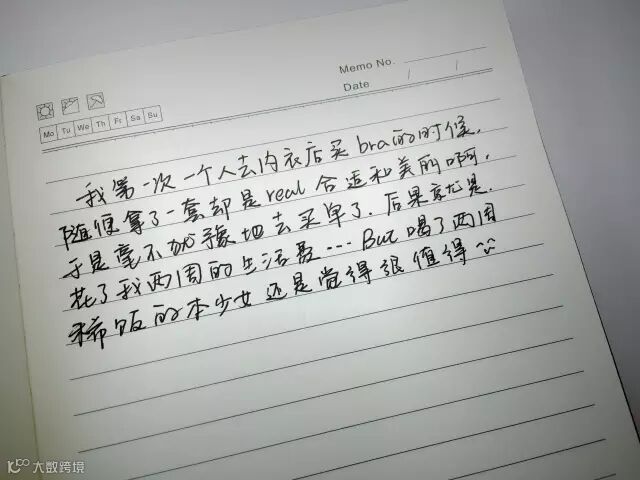 Memo No.
Date / /
Mo Tu We Th Fr Sa Su
我第一次一个人去内衣店买bra的时候,
随便拿了一套却是real合适和美丽啊,
于是毫不犹豫地去买单了.后果就是.
花了我两周的生活费…But喝了两周
稀饭的本少女还是觉得很值得
大数跨境